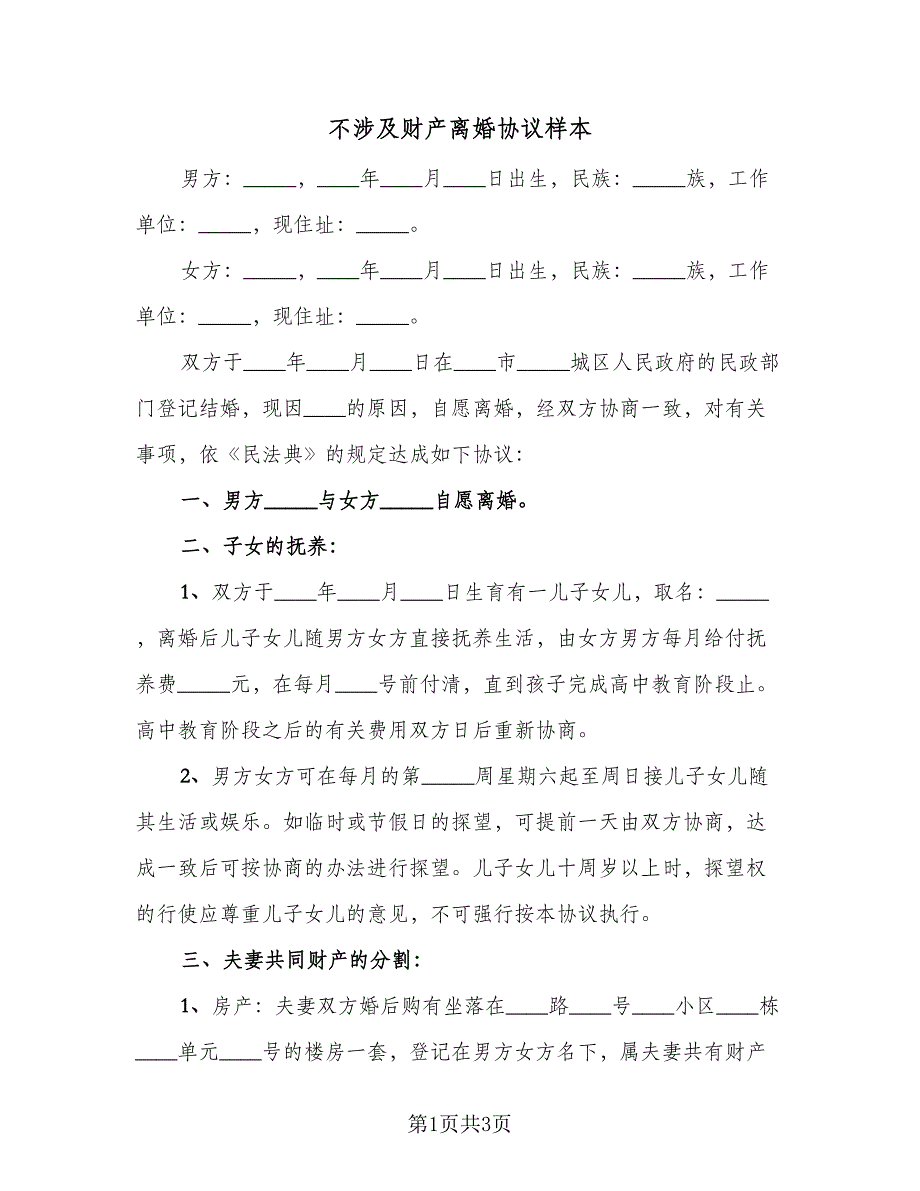 不涉及财产离婚协议样本
男方：_____，____年____月____日出生，民族：_____族，工作
单位：_____，现住址：_____。
女方：_____，____年____月____日出生，民族：_____族，工作
单位：_____，现住址：_____。
双方于____年____月____日在____市_____城区人民政府的民政部
门登记结婚，现因____的原因，自愿离婚，经双方协商一致，对有关
事项，依《民法典》的规定达成如下协议：
一、男方_____与女方_____自愿离婚。
二、子女的抚养：
1、双方于____年____月____日生育有一儿子女儿，取名：_____
，离婚后儿子女儿随男方女方直接抚养生活，由女方男方每月给付抚
养费_____元，在每月____号前付清，直到孩子完成高中教育阶段止。
高中教育阶段之后的有关费用双方日后重新协商。
2、男方女方可在每月的第_____周星期六起至周日接儿子女儿随
其生活或娱乐。如临时或节假日的探望，可提前一天由双方协商，达
成一致后可按协商的办法进行探望。儿子女儿十周岁以上时，探望权
的行使应尊重儿子女儿的意见，不可强行按本协议执行。
三、夫妻共同财产的分割：
1、房产：夫妻双方婚后购有坐落在____路____号____小区____栋
____单元____号的楼房一套，登记在男方女方名下，属夫妻共有财产
第1页共3页